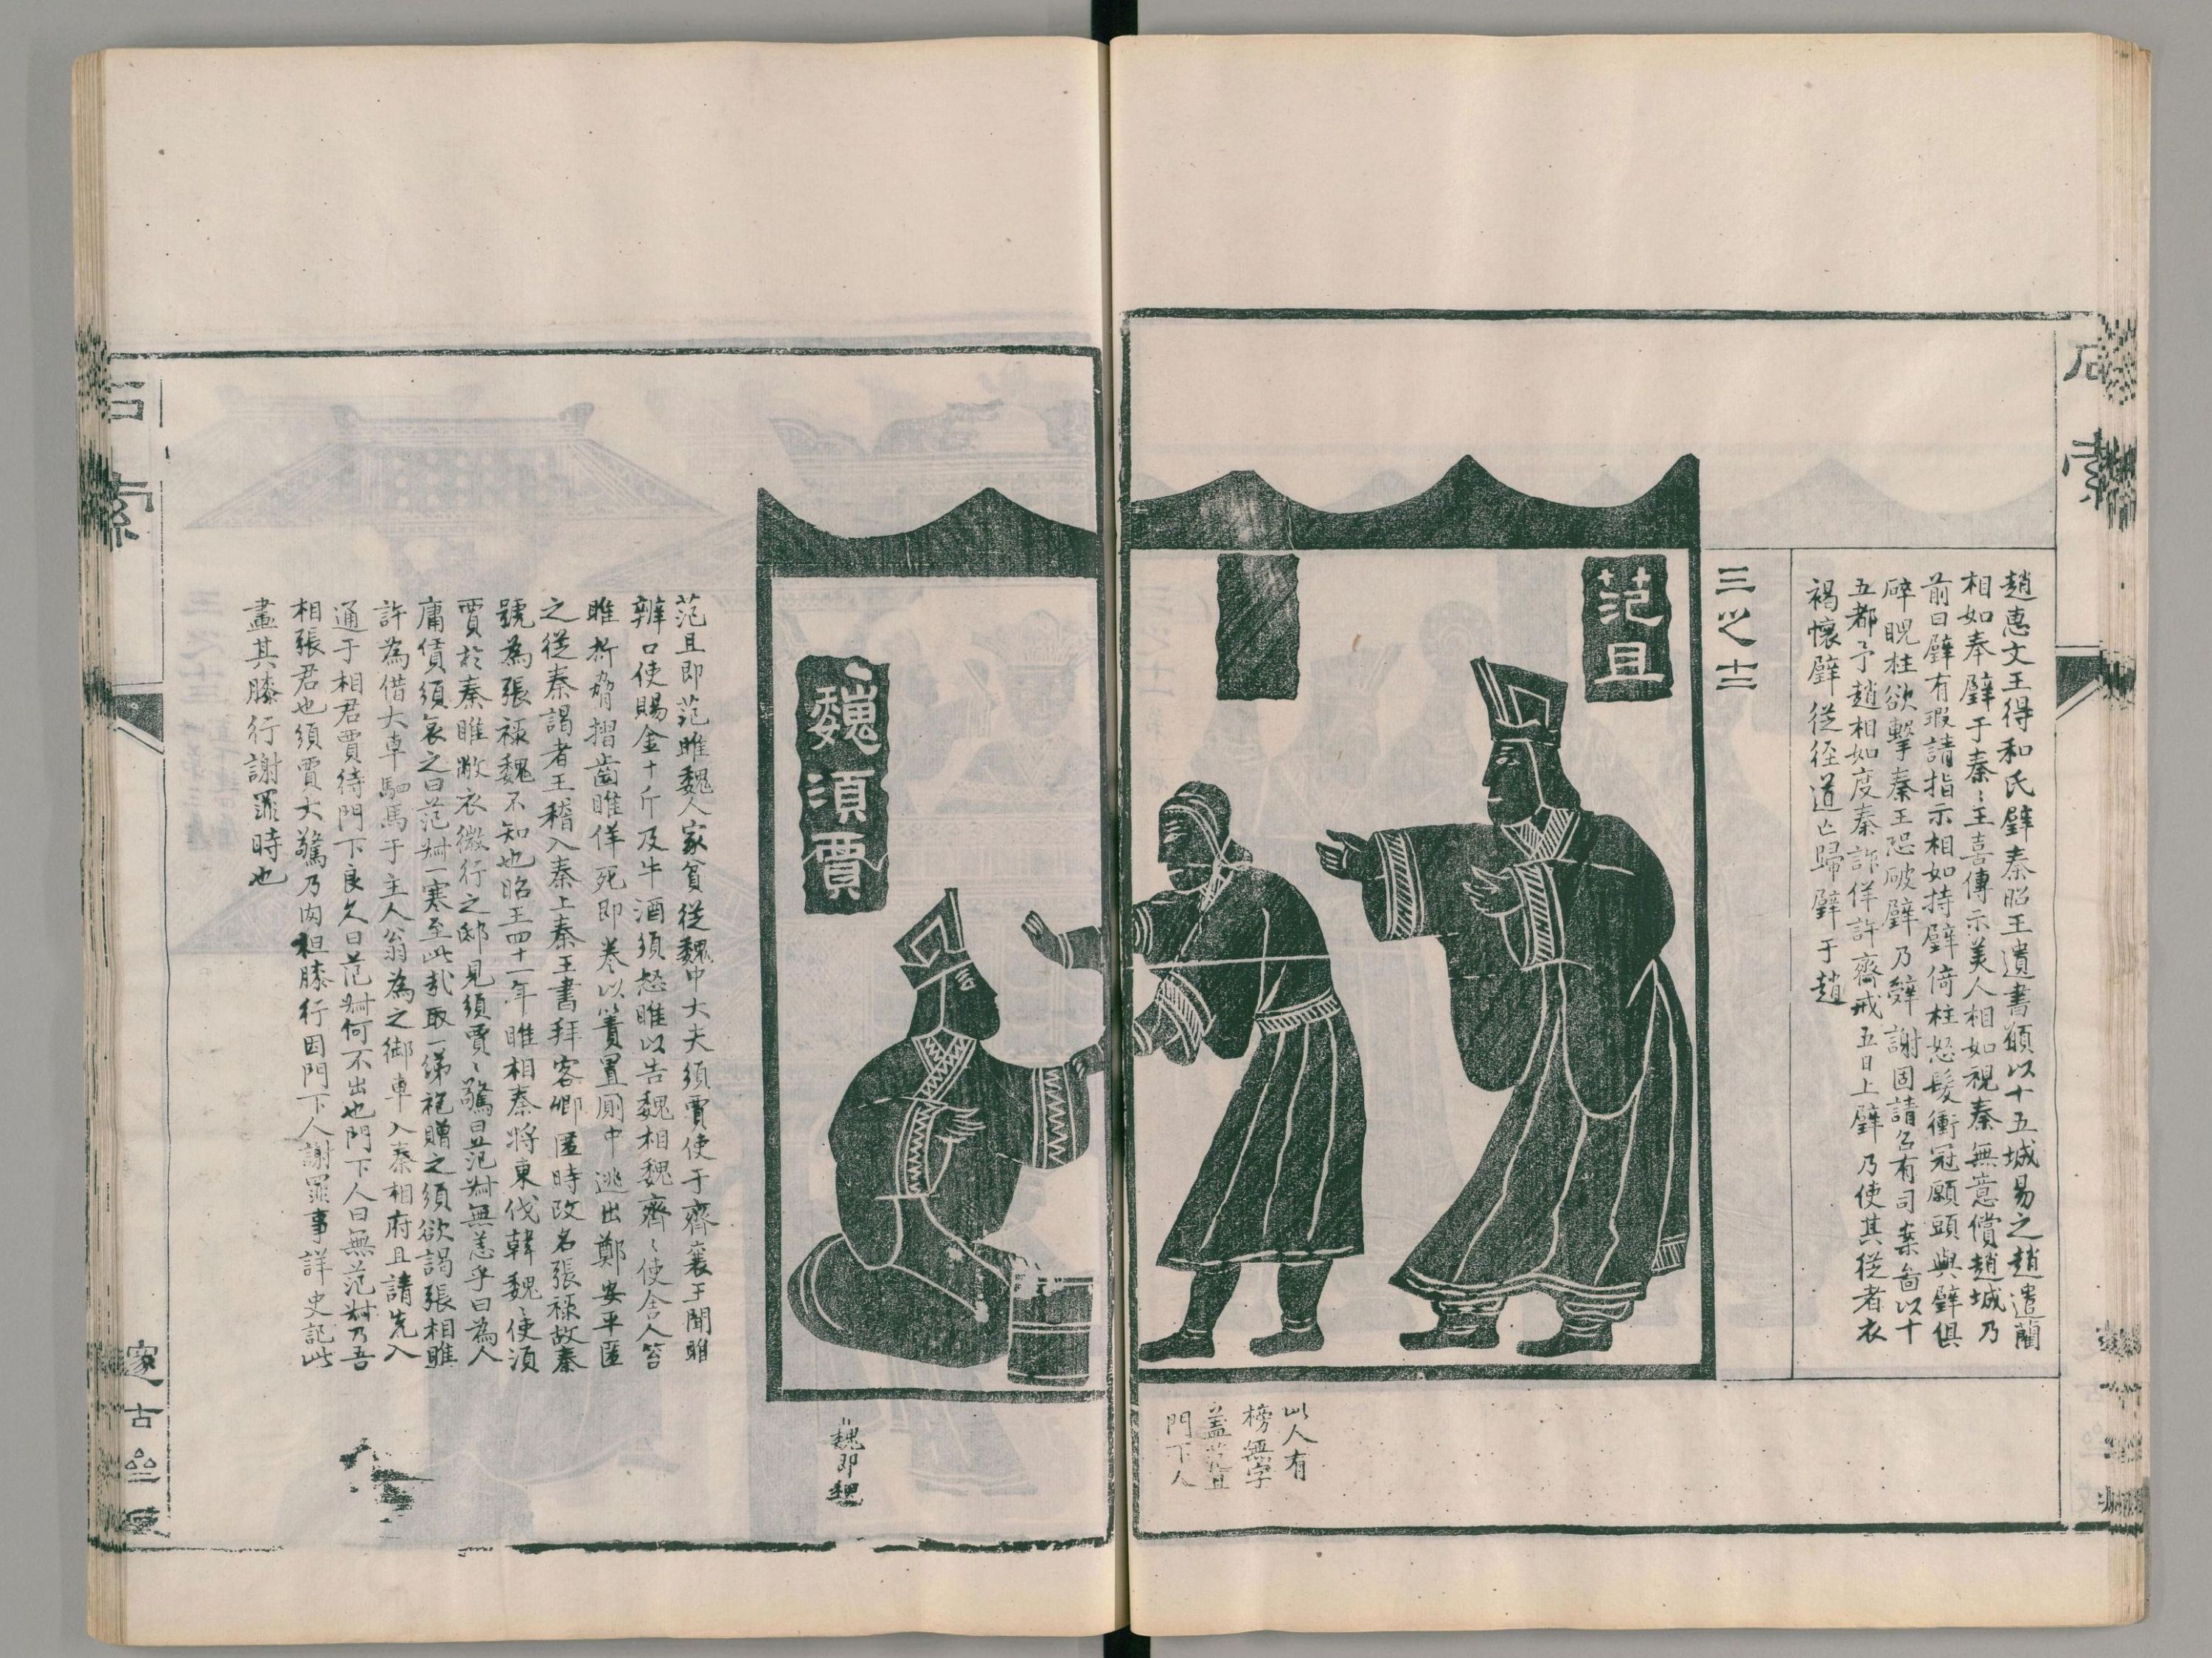 石索
趙惠文王得和氏璧秦昭王遺書願以十五城易之趙遣藺
相如奉璧于秦〻王喜傳示美人相如視秦無意償趙城乃
前曰璧有瑕請指示相如持璧倚柱怒髮衝冠願頭與璧俱
碎睨柱欲擊秦王恐破璧乃辭謝固請召有司案啚以十
五都予趙相如度秦詐佯許齋戒五日上璧乃使其從者衣
褐懷璧從徑道亡歸璧于趙
三之十二
范且
此人有
榜無字
蓋范且
門下人
魏須賈
魏即魏
范且即范雎魏人家貧從魏中大夫須賈使于齊襄王聞雎
辯口使賜金十斤及牛酒須怒雎以告魏相魏齊〻使舍人笞
雎折脅摺齒雎佯死即卷以簀置厠中逃出鄭安平匿
之從秦謁者王稽入秦上秦王書拜客卿匿時改名張祿故秦
號為張祿魏不知也昭王四十一年雎相秦將東伐韓魏〻使須
賈於秦雎敝衣微行之邸見須賈〻驚曰范叔無恙乎曰為人
庸賃須哀之曰范叔一寒至此哉取一綈袍贈之須欲謁張相雎
許為借大車駟馬于主人翁為之御車入秦相府且請先入
通于相君賈待門下良久曰范叔何不出也門下人曰無范叔乃吾
相張君也須賈大驚乃肉袒膝行因門下人謝罪事詳史記此
畫其膝行謝罪時也
石索
邃古